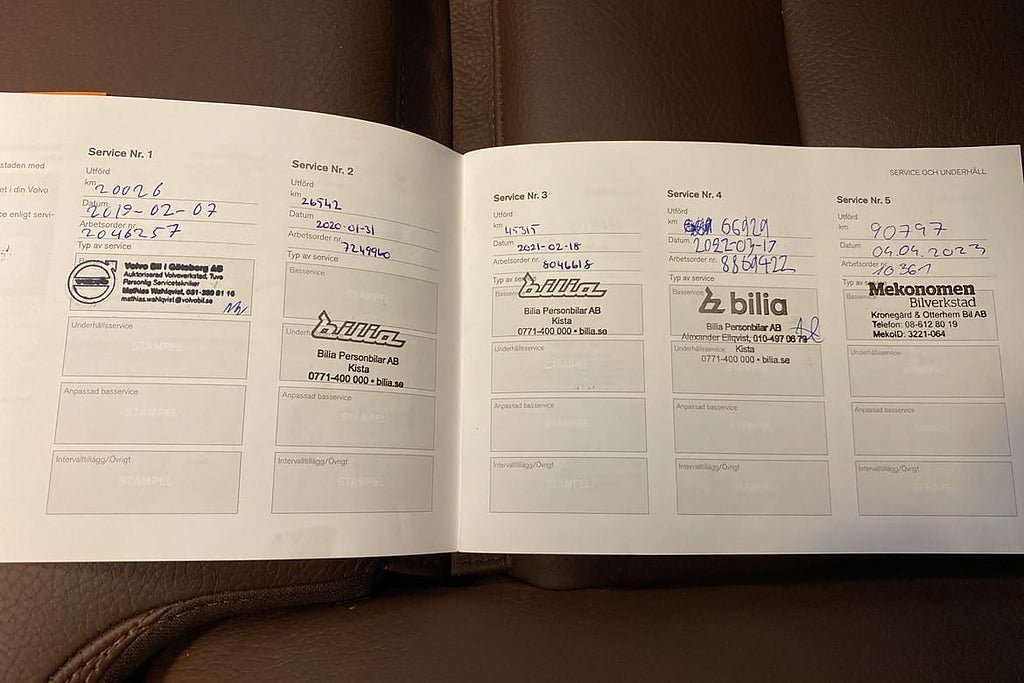 staden med
et i din Volvo
e enligt servi-
Service Nr. 1
Utförd
km 20026
Datum 2019-02-07
Arbetsorder nr. 2046257
Typ av service
Volvo Bil i Göteborg AB
Auktoriserad Volvoverkstad, Tuve
Personlig Servicetekniker
Mathias Wahlqvist, 031-389 81 16
mathias.wahlqvist@volvobil.se
Underhållsservice
STÄMPEL
Anpassad basservice
STÄMPEL
Intervalltillägg/Övrigt
STÄMPEL
Service Nr. 2
Utförd
km 26542
Datum 2020-01-31
Arbetsorder nr. 7249960
Typ av service
Basservice
STÄMPEL
bilia
Bilia Personbilar AB
Kista
0771-400 000 • bilia.se
Anpassad basservice
STÄMPEL
Intervalltillägg/Övrigt
STÄMPEL
SERVICE OCH UNDERHÅLL
Service Nr. 3
Utförd
km 45315
Datum 2021-02-18
Arbetsorder nr. 8046618
Typ av service
Basservice
bilia
Bilia Personbilar AB
Kista
0771-400 000 • bilia.se
Underhållsservice
STÄMPEL
Anpassad basservice
STÄMPEL
Intervalltillägg/Övrigt
STÄMPEL
Service Nr. 4
Utförd
km 66929
Datum 2022-03-17
Arbetsorder nr. 8869422
Typ av service
Basservice
bilia
Bilia Personbilar AB
Alexander Ellqvist, 010-497 06 79
Kista
Underhållsservice
0771-400 000 • bilia.se
Anpassad basservice
Intervalltillägg/Övrigt
Service Nr. 5
Utförd
km 90797
Datum 04.04.2023
Arbetsorder nr. 10361
Typ av
Mekonomen
Bilverkstad
Kronegård & Otterhem Bil AB
Telefon: 08-612 80 19
MekoID: 3221-064
Underhållsservice
Anpassad basservice
Intervalltillägg/Övrigt